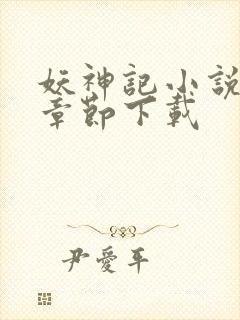 妖神記小說
章節下載
尹愛平